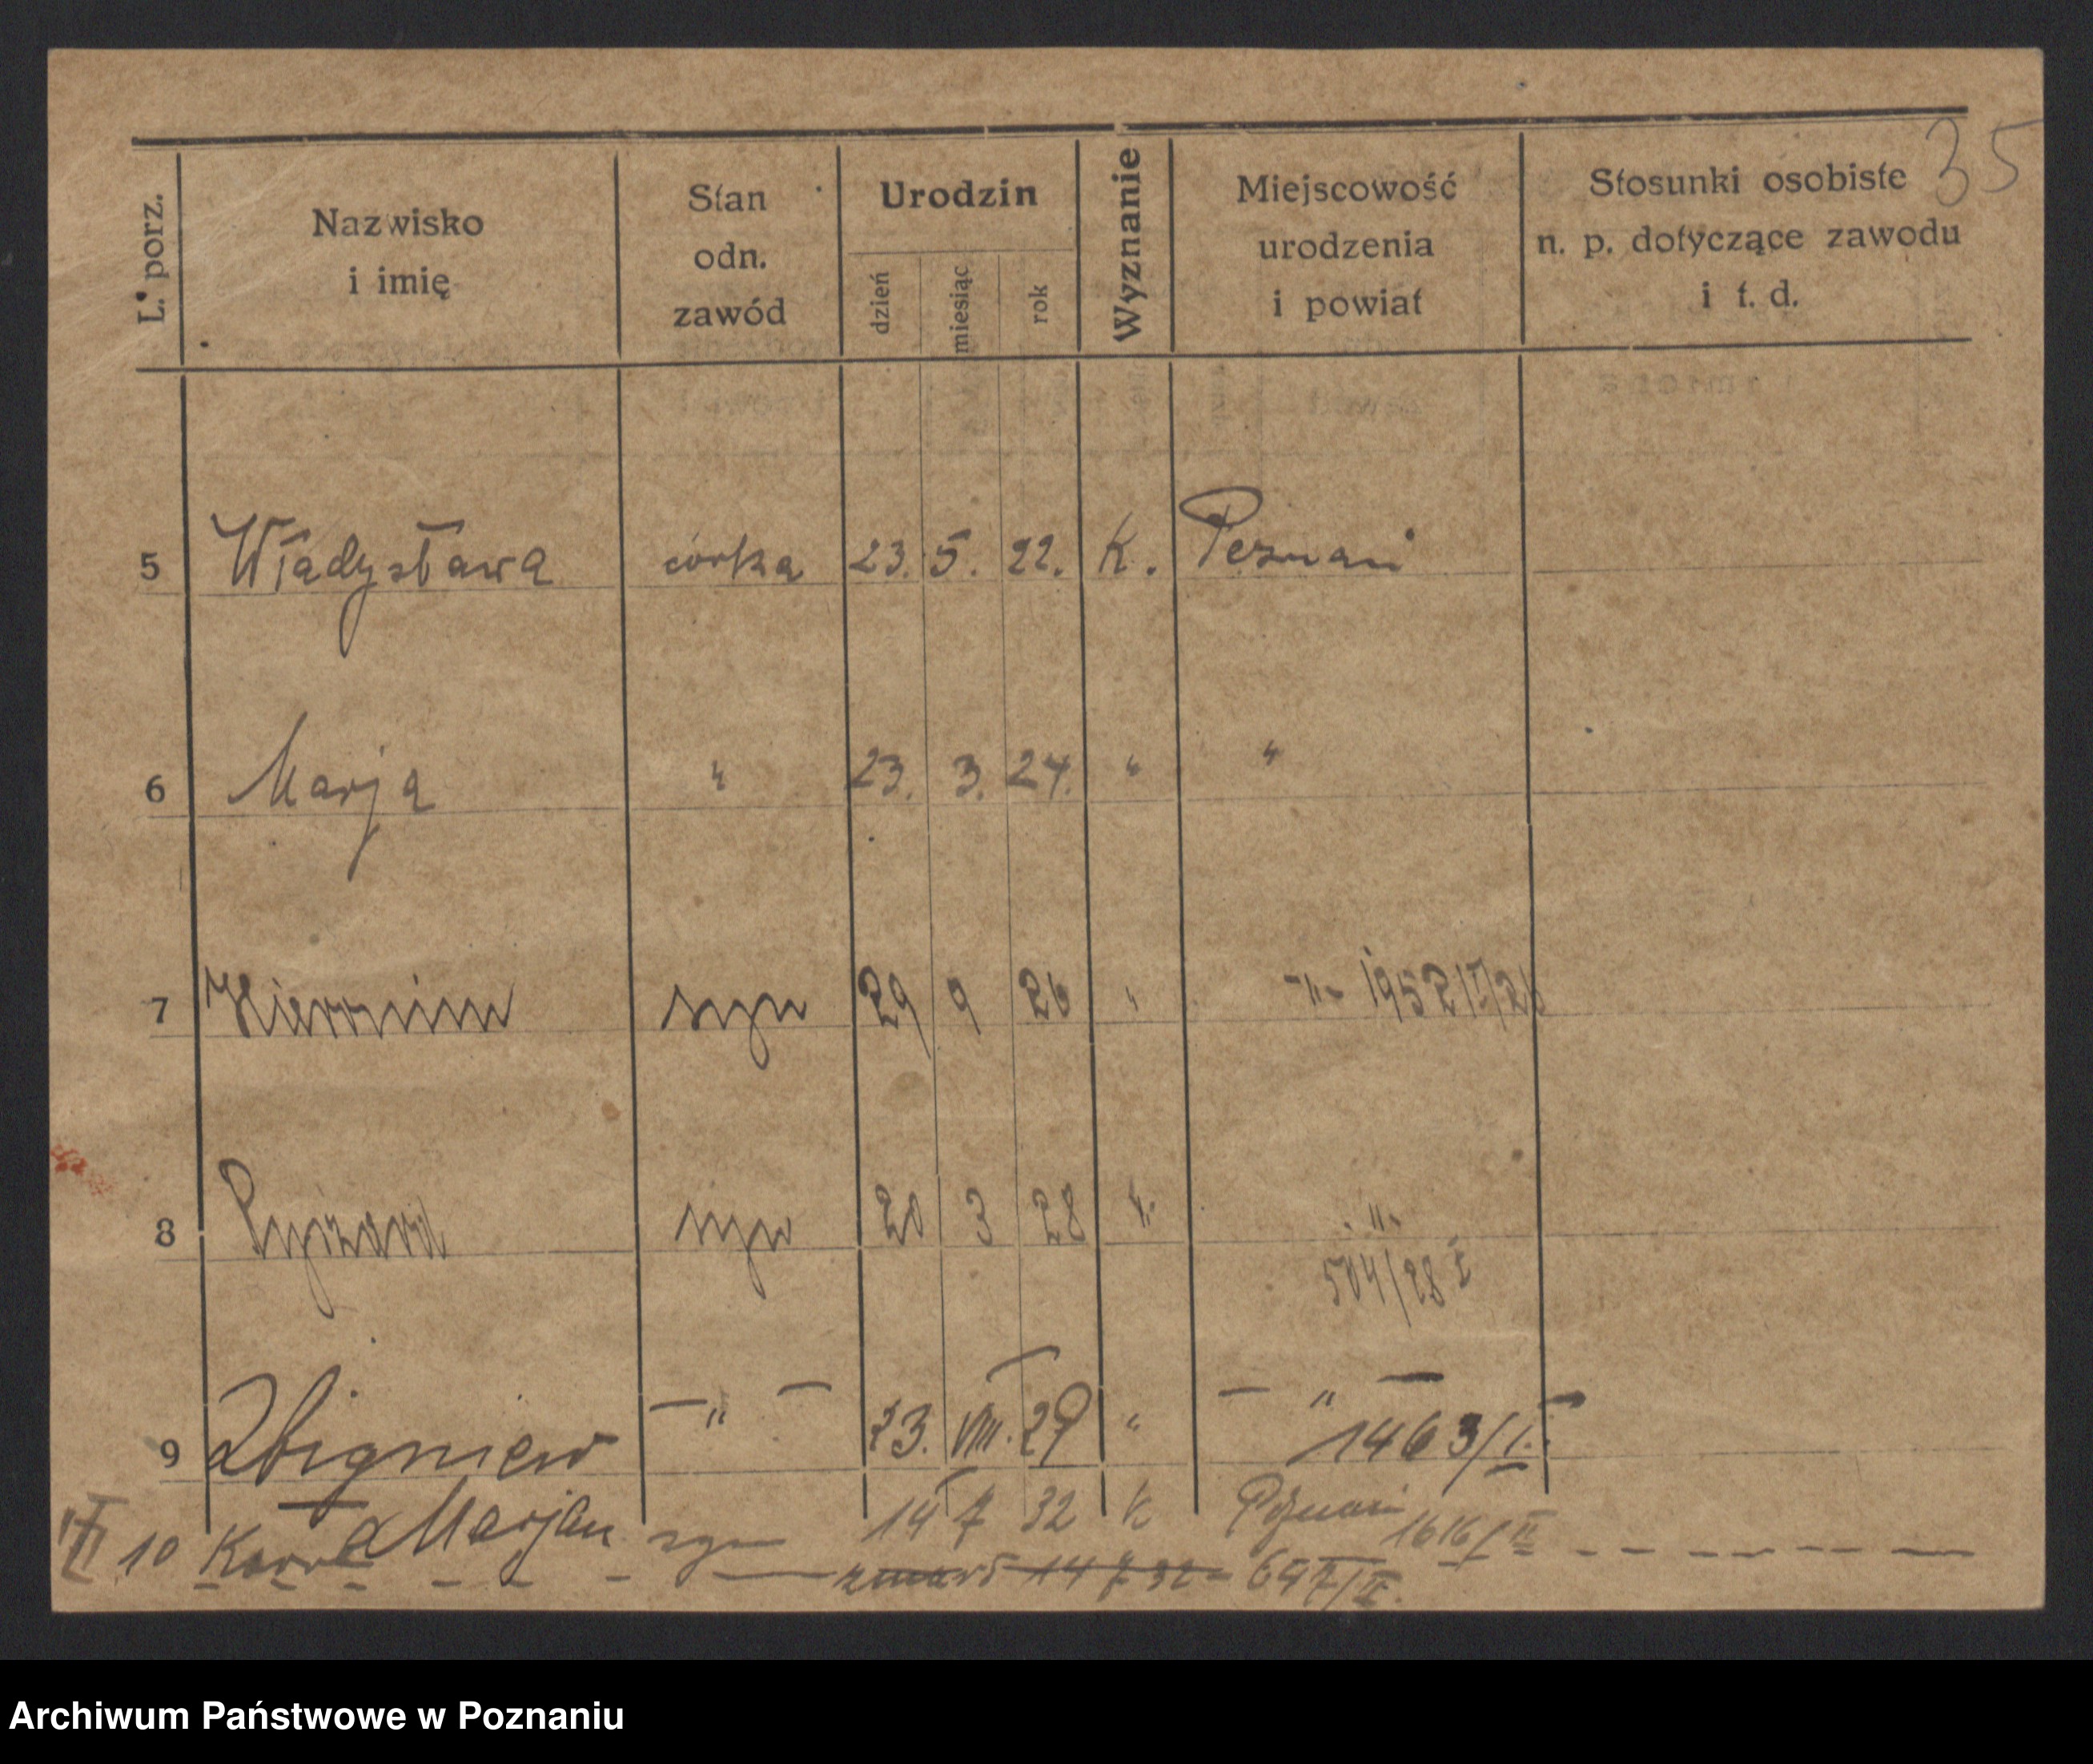 35
L. porz.
Nazwisko i imię
Stan odn. zawód
Urodzin
dzień miesiąc rok
Wyznanie
Miejscowość urodzenia i powiat
Stosunki osobiste n. p. dotyczące zawodu i t. d.
5 Władysława córka 23. 5. 22. K. Poznań
6 Marja " 23. 3. 24. " "
7 Hieronim syn 29 9 26 " -"- 1952/II/26
8 Ryszard syn 20 3 28 ". -"-
504/28 I
9 Zbigniew — " — 23. VIII. 29 " — " —
1463/I.
10 Marjan syn 14 7 32 K Poznań 1616/II
zmarł 14 7 32 = 697/II.
Archiwum Państwowe w Poznaniu